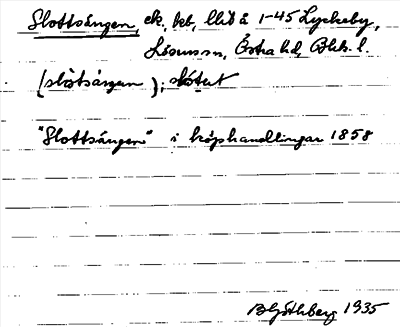 Slottsängen, ek, beb, llit å 1-45 Lyckeby,
Lösens sn, Östra hd, Blek. l.
(slòtsàŋen); slótet
"Slottsängen" i köpshandlingar 1858
B Göthberg 1935